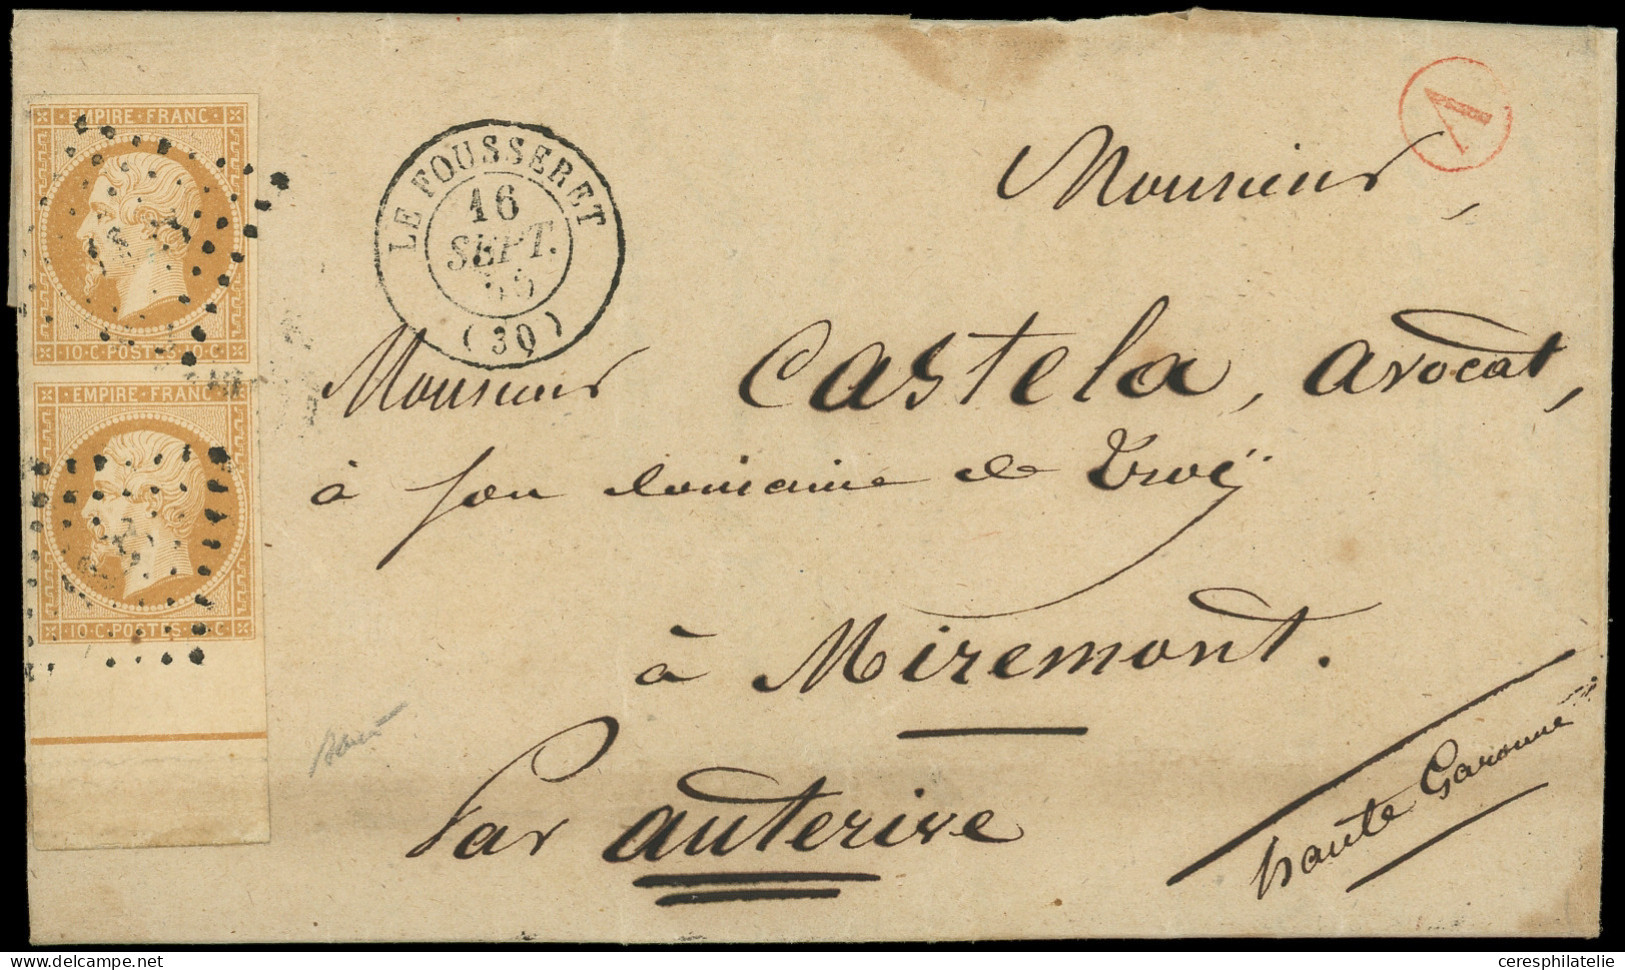 EMPIRE · FRANC ·
10 · C · POSTES · 10 · C ·
EMPIRE · FRANC ·
· 10 · C · POSTES · 10 · C ·
LE FOUSSERET
16
SEPT.
55
(30)
A
Monsieur,
Monsieur Castela, avocat,
à son domaine de
à Miremont.
Par auterive
haute Garonne
www.delcampe.net
ceresphilatelie